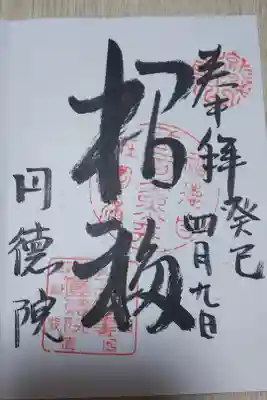 奉拝 癸巳
四月九日
招福
円德院